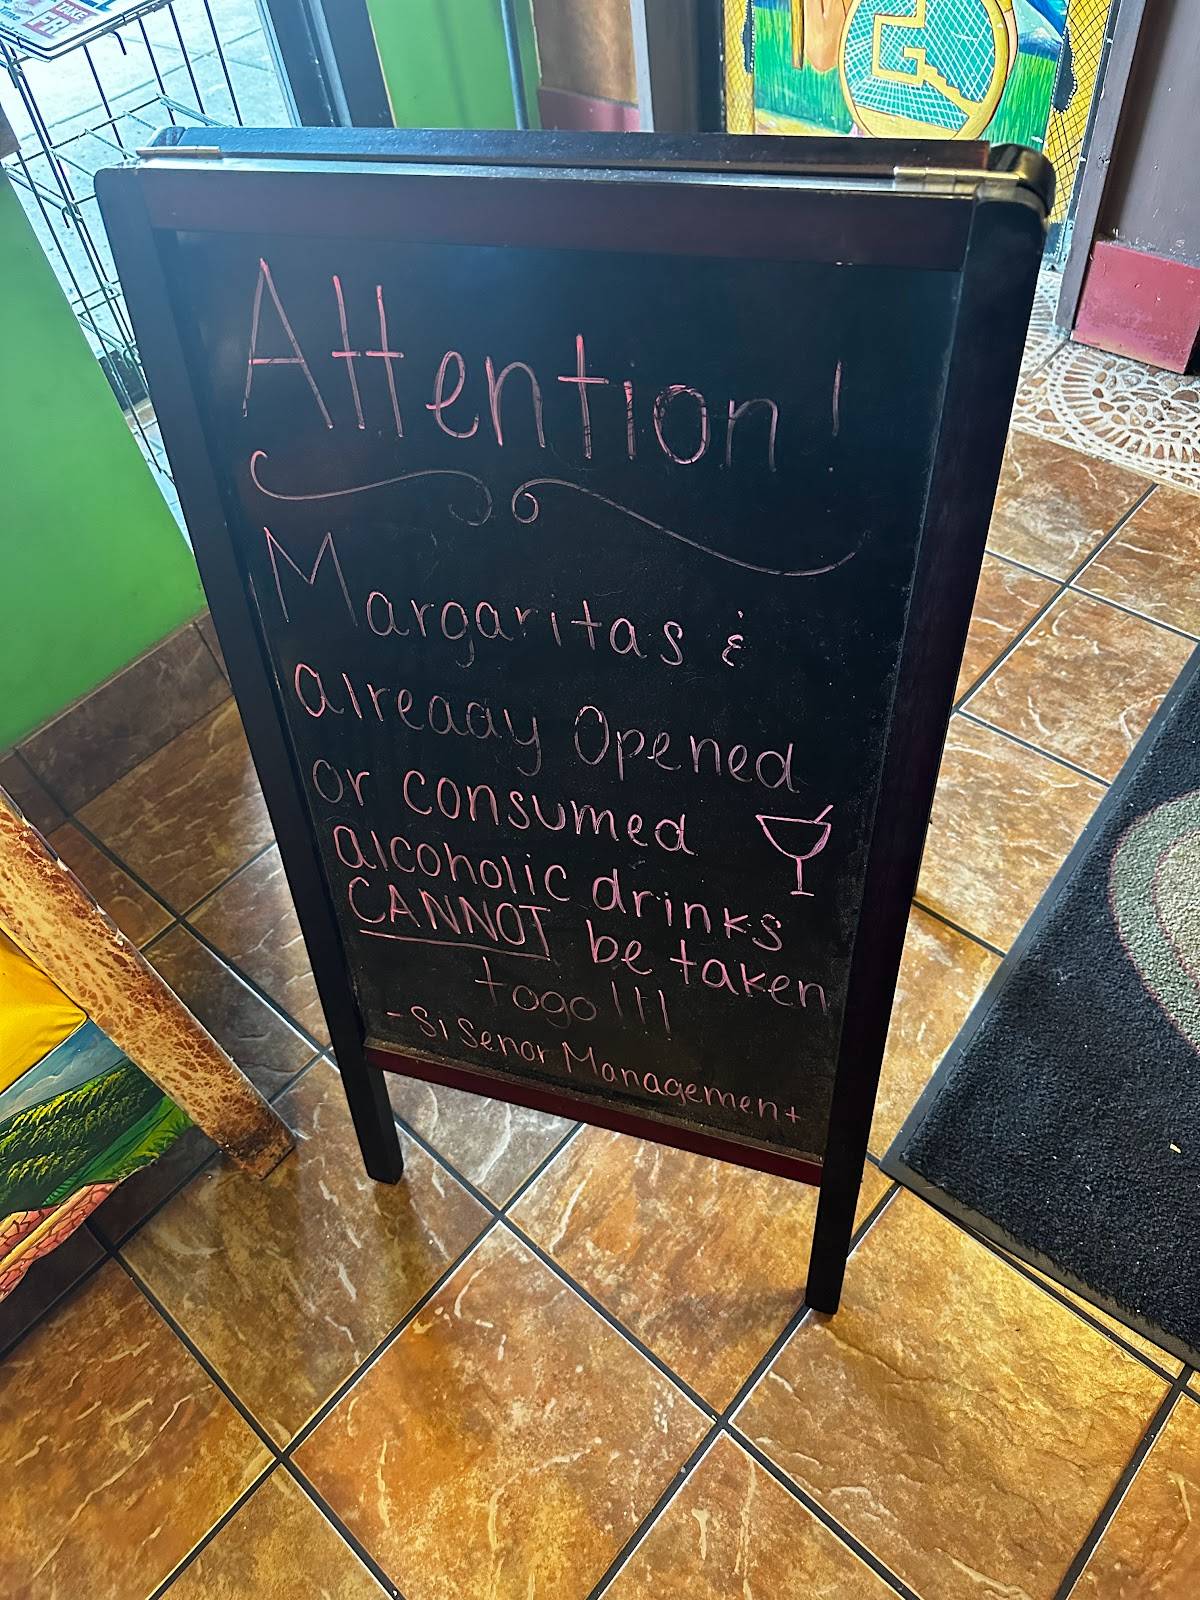 TAKE
Attention!
Margaritas &
already Opened
or consumed
alcoholic drinks
CANNOT be taken
togo!!!
- Si Senor Management